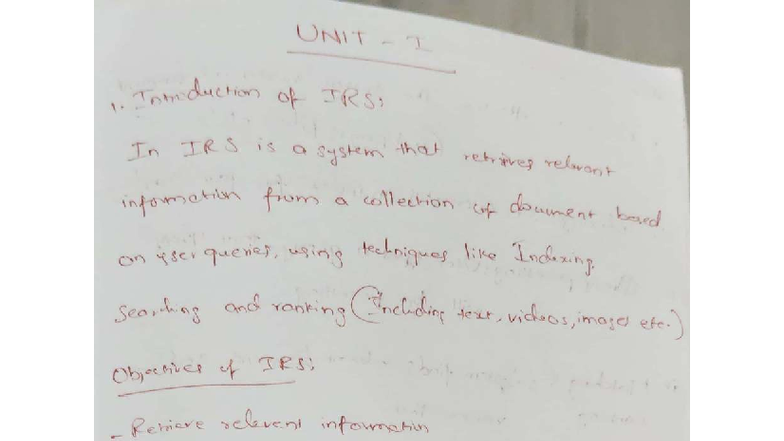 UNIT - I
1. Introduction of IRS:
In IRS is a system that retrives relevant
information from a collection of document based
on user queries, using techniques like Indexing,
Searching and ranking (Including text, videos, images etc.)
Objectives of IRS:
- Retrieve relevent information